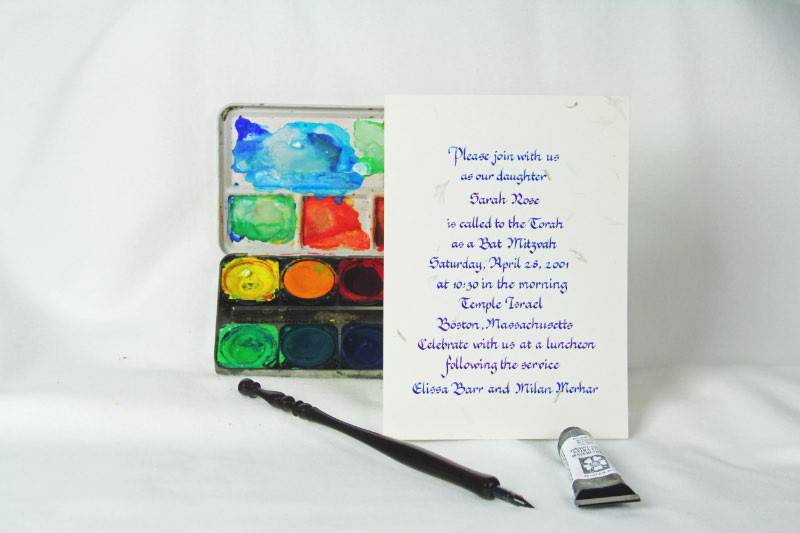 Please join with us
as our daughter
Sarah Rose
is called to the Torah
as a Bat Mitzvah
Saturday, April 28, 2001
at 10:30 in the morning
Temple Israel
Boston, Massachusetts
Celebrate with us at a luncheon
following the service
Elissa Barr and Milan Merhar